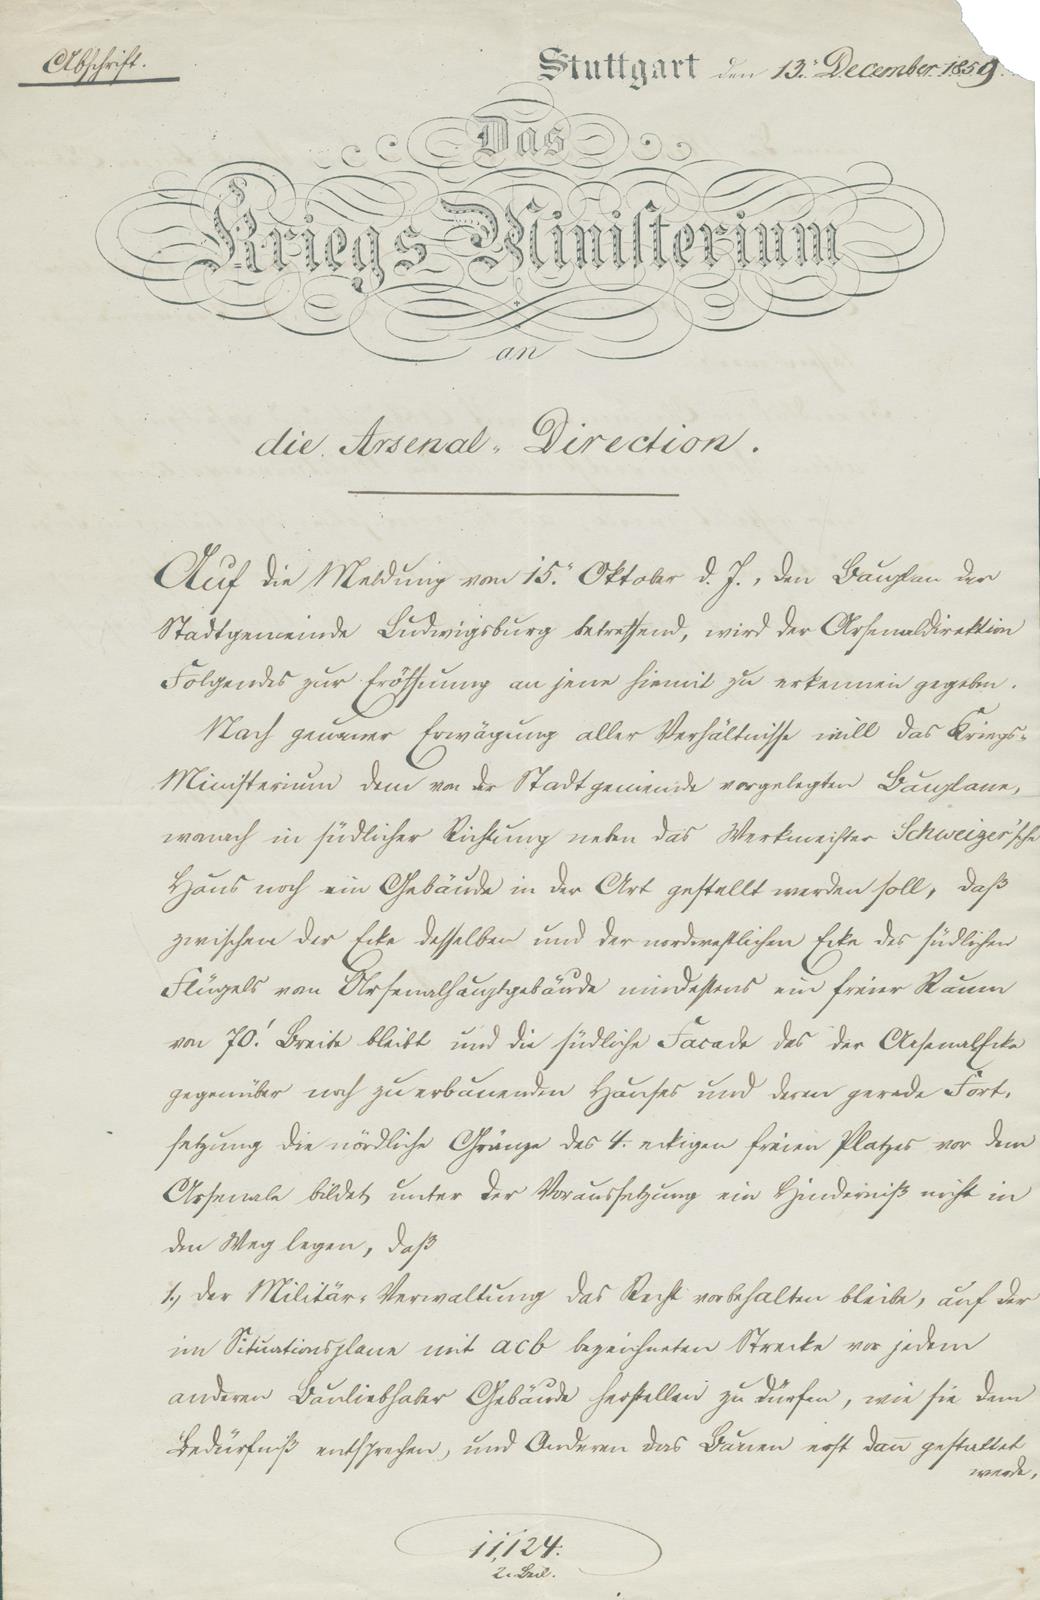 Abschrift.
Stuttgart den 13. December 1859.
Das
Kriegs-Ministerium
an
die Arsenal-Direction.
Auf die Meldung vom 15. Oktober d. J., den Bauplan der
Stadtgemeinde Ludwigsburg betreffend, wird der Arsenaldirektion
Folgendes zur Eröffnung an jene hiemit zu erkennen gegeben.
Nach genauer Erwägung aller Verhältnisse will das Kriegs-
Ministerium dem von der Stadtgemeinde vorgelegten Bauplane,
wonach in südlicher Richtung neben das Werkmeister Schweizer'sche
Haus noch ein Gebäude in der Art gestellt werden soll, daß
zwischen der Ecke desselben und der nordwestlichen Ecke des südlichen
Flügels vom Arsenalhauptgebäude mindestens ein freier Raum
von 70.' Breite bleibt und die südliche Facade des der ArsenalEcke
gegenüber noch zu erbauenden Hauses und deren gerade Fort-
setzung die nördliche Gränze des 4. eckigen freien Platzes vor dem
Arsenale bildet, unter der Voraussetzung ein Hinderniß nicht in
den Weg legen, daß
1., der Militär-Verwaltung das Recht vorbehalten bleibe, auf der
im Situationsplane mit acb bezeichneten Strecke vor jedem
anderen Bauliebhaber Gebäude herstellen zu dürfen, wie sie dem
Bedürfniß entsprechen, und Anderen das Bauen erst dann gestattet
werde,
11,124.
2. Beil.